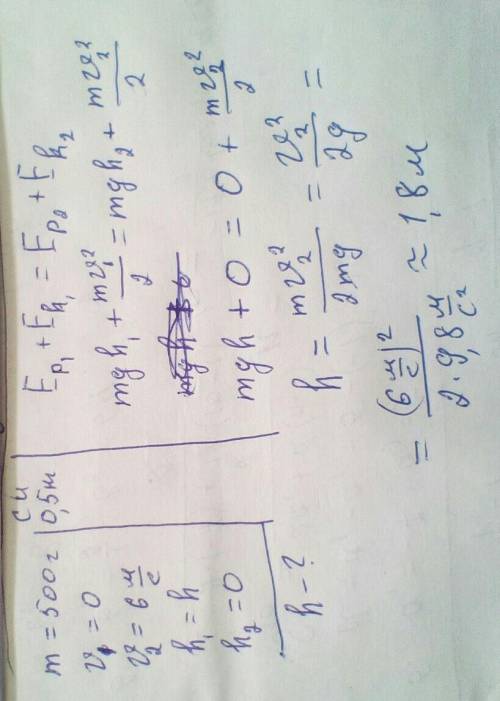 m = 500г
v₁ = 0
v₂ = 6 м/с
h₁ = h
h₂ = 0
h - ?
СИ
0,5м
Eₚ₁ + Eₖ₁ = Eₚ₂ + Eₖ₂
mgh₁ + mv₁²/2 = mgh₂ + mv₂²/2
mgh + 0 = 0 + mv₂²/2
h = mv₂²/2mg = v₂²/2g =
= (6 м/с)²/2·9,8 м/с² ≈ 1,8 м